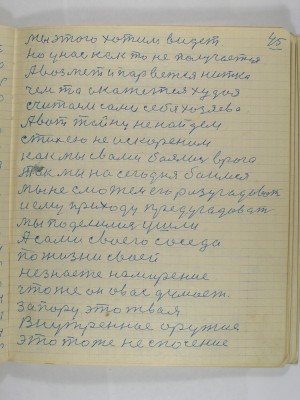 45
мы этого хотим видет
но у нас как то не получается
А возмет и парвется нитка
чем та окажется худоя
считаем сами себя хозяева
А вот тайну не найдем
стихею не искореним
как мы с вами баялис врога
Так мы на сегодня баимся
мы не сможем его разугадоват
и ему приходу предугадоват
мы поделимся ушли
А сами своего соседа
по жизни своей
незнаете намирение
что же он о вас думает.
запору этожвая
Внутренное оружие
это тоже не спосение